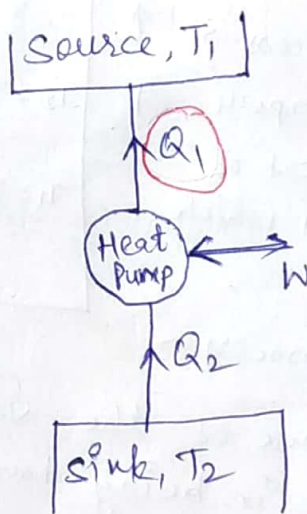 Source, T1
Q1
Heat
Pump
W
Q2
Sink, T2